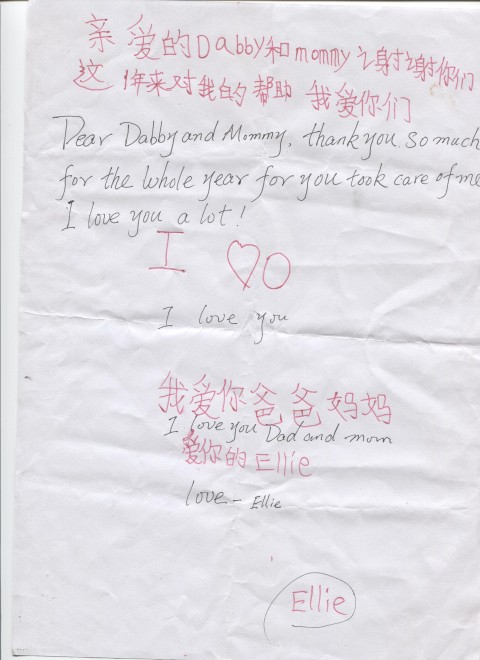 亲爱的Dabby和mommy谢谢你们
这1年来对我的帮助 我爱你们
Dear Dabby and Mommy, thank you so much
for the whole year for you took care of me
I love you a lot!
I ♡ O
I love you
我爱你爸爸妈妈
I love you Dad and mom
爱你的Ellie
love - Ellie
Ellie